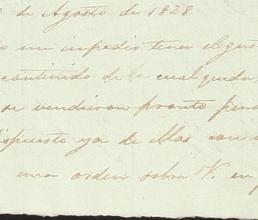 de Agosto de 1828
me impedio tener el gus
contenido de la cual queda
se vendieron pronto pero
ispuesto ya de ellas con
una orden sobre V. en